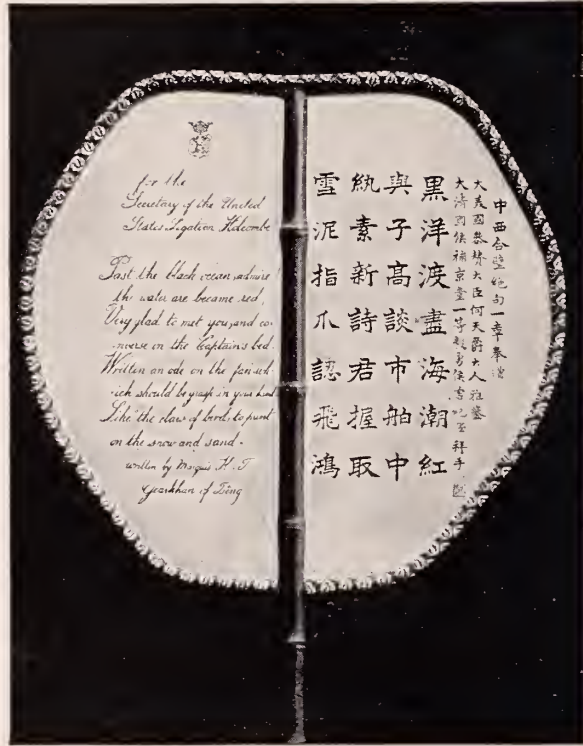 for the
Secretary of the United
States Legation Holcombe
Past the black ocean, admire!
the water are became red!
Very glad to met you, and co-
nverse on the Captain's bed.
Written an ode on the fan wh-
ich should be grasp in your hand
Like the claw of bird, to print
on the snow and sand.
written by Marquis H. T.
Yearkhan of Tseng
中西合璧絕句一章奉贈
大美國參贊大臣何天爵大人雅鑒
大清國侯補京堂一等毅勇侯曾紀澤拜手
黑洋渡盡海潮紅
與子高談市舶中
紈素新詩君握取
雪泥指爪認飛鴻